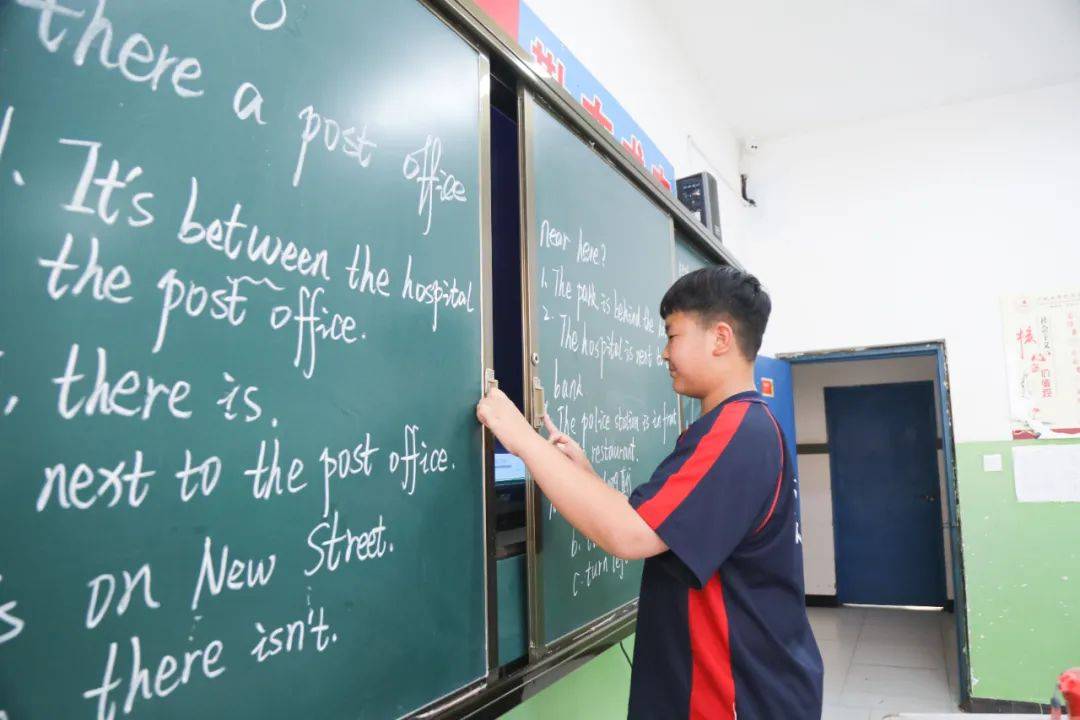 there a post office
1. It's between the hospital
the post office.
, there is.
next to the post office.
on New Street.
there isn't.
near here?
1. The park is behind the
2. The hospital is next
bank
The police station is in front
restaurant.
b.
c. turn left
核心价值观
社会主义